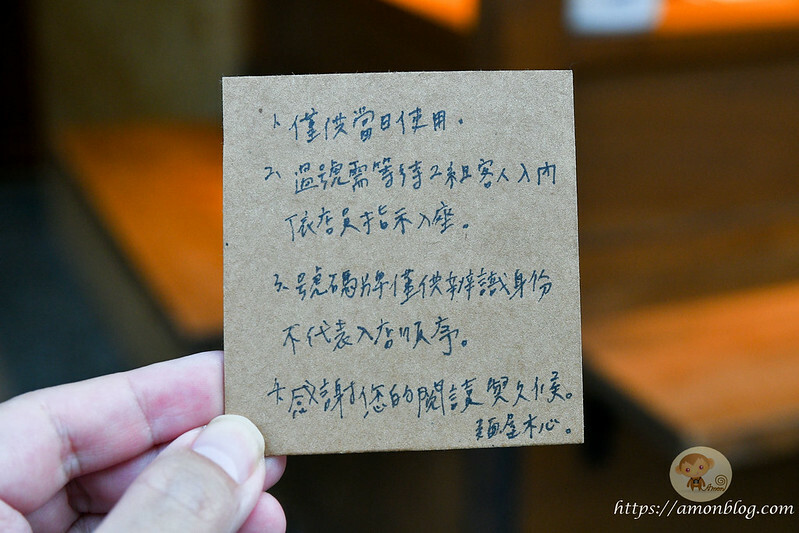 1、僅供當日使用。
2、過號需等待2組客人入內
依店員指示入座。
3、號碼牌僅供辨識身份
不代表入店順序。
4、感謝您的閱讀與久候。
麵屋木心。
Amon
https://amonblog.com